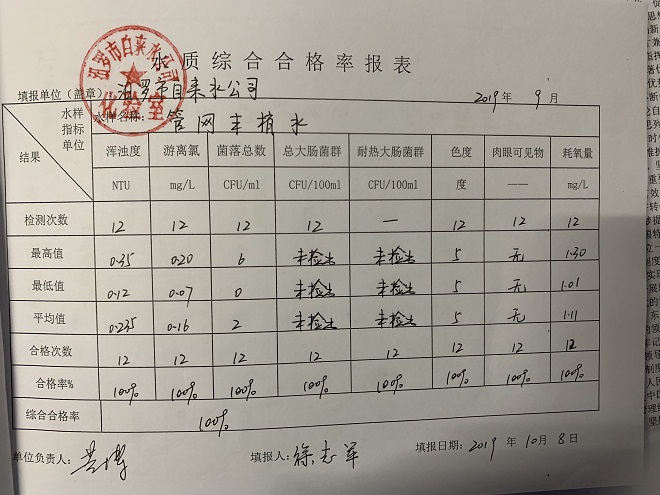 水质综合合格率报表
汨罗市自来水公司
化验室
填报单位（盖章）汨罗市自来水公司 2019年 9月
水样
指标
单位
结果
水样名称： 管网末梢水
浑浊度 游离氯 菌落总数 总大肠菌群 耐热大肠菌群 色度 肉眼可见物 耗氧量
NTU mg/L CFU/ml CFU/100ml CFU/100ml 度 —— mg/L
检测次数 12 12 12 12 — 12 12 12
最高值 0.35 0.20 6 未检出 未检出 5 无 1.30
最低值 0.12 0.07 0 未检出 未检出 5 无 1.01
平均值 0.235 0.16 2 未检出 未检出 5 无 1.11
合格次数 12 12 12 12 12 12 12 12
合格率% 100% 100% 100% 100% 100% 100% 100% 100%
综合合格率 100%
单位负责人： 填报人：徐志军 填报日期：2019 年 10月 8日